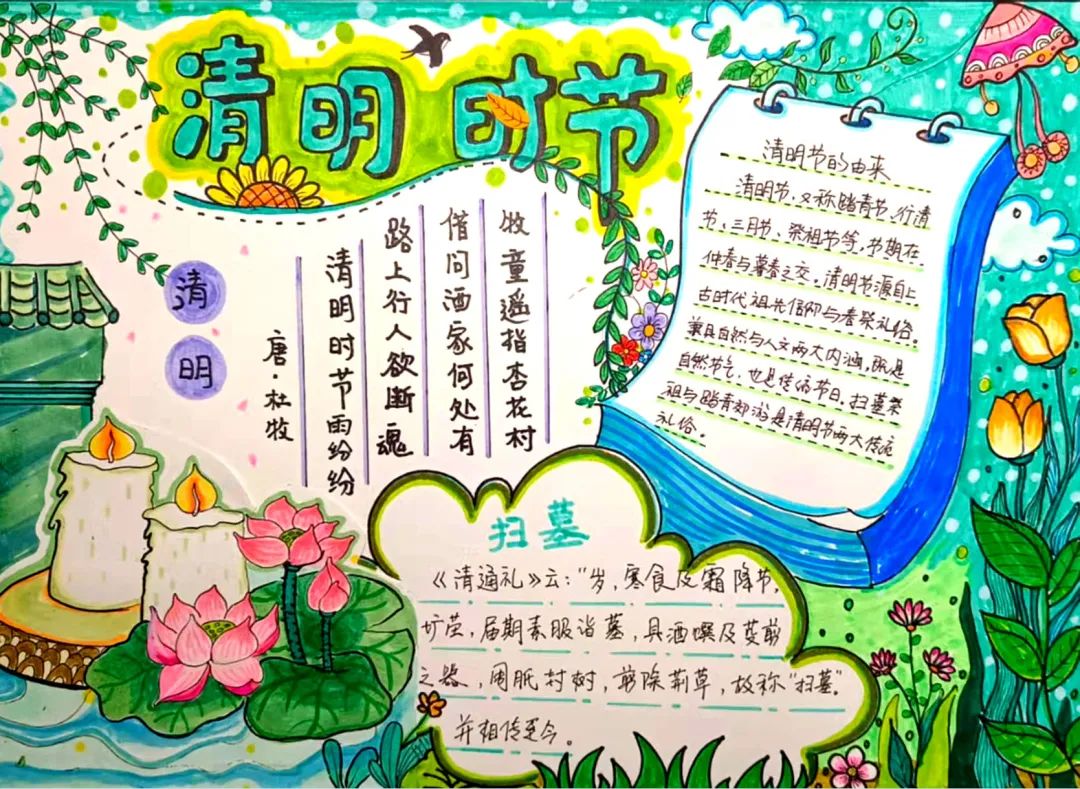 清明时节
清明
唐·杜牧
清明时节雨纷纷
路上行人欲断魂
借问酒家何处有
牧童遥指杏花村
清明节的由来
清明节,又称踏青节、行清
节、三月节、祭祖节等,节期在
仲春与暮春之交,清明节源自上
古时代祖先信仰与春祭礼俗。
兼具自然与人文两大内涵,既是
自然节气、也是传统节日,扫墓祭
祖与踏青郊游是清明节两大传统
礼俗。
扫墓
《清通礼》云:"岁,寒食及霜降节,
扩茔,届期素服诣墓,具酒馔及芟剪
之器,周胝村树,剪除荆草,故称"扫墓"。
并相传至今。